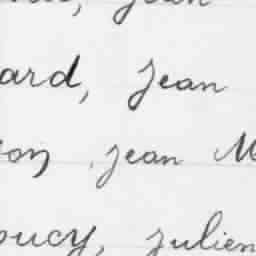 jean
ard, Jean
on, jean M
oucy, julien